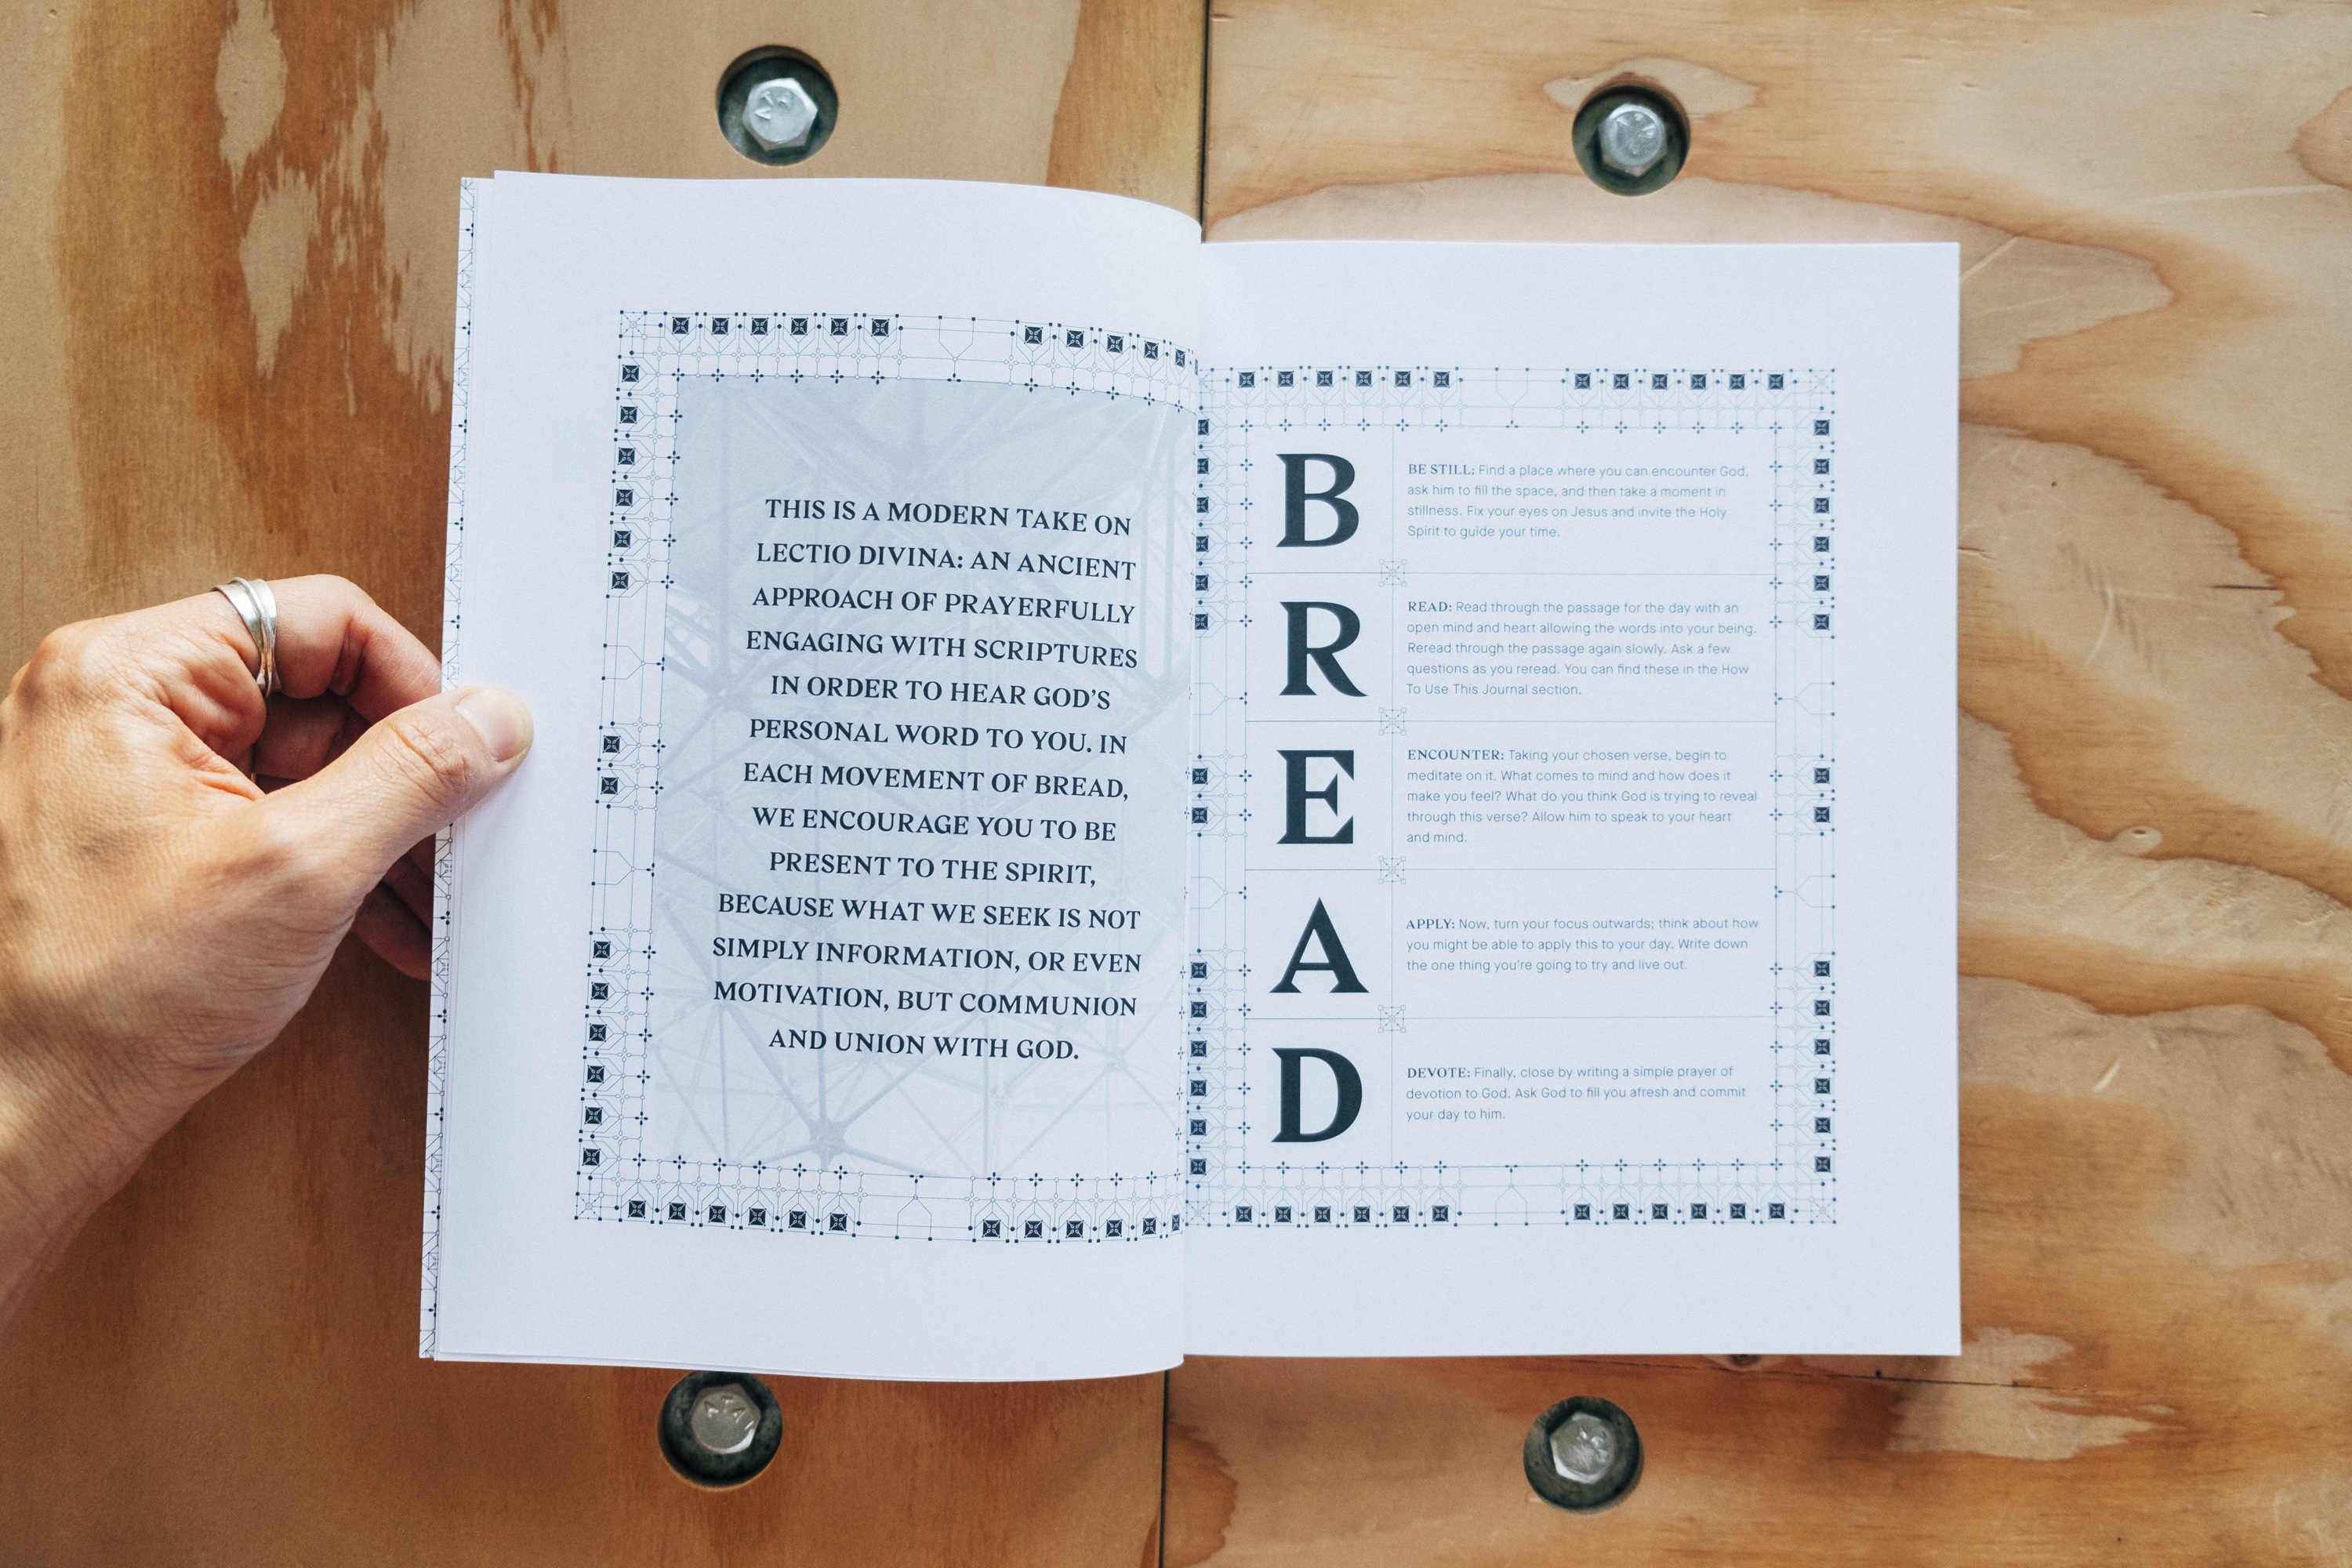 THIS IS A MODERN TAKE ON
LECTIO DIVINA: AN ANCIENT
APPROACH OF PRAYERFULLY
ENGAGING WITH SCRIPTURES
IN ORDER TO HEAR GOD'S
PERSONAL WORD TO YOU. IN
EACH MOVEMENT OF BREAD,
WE ENCOURAGE YOU TO BE
PRESENT TO THE SPIRIT,
BECAUSE WHAT WE SEEK IS NOT
SIMPLY INFORMATION, OR EVEN
MOTIVATION, BUT COMMUNION
AND UNION WITH GOD.
B
BE STILL: Find a place where you can encounter God,
ask him to fill the space, and then take a moment in
stillness. Fix your eyes on Jesus and invite the Holy
Spirit to guide your time.
R
READ: Read through the passage for the day with an
open mind and heart allowing the words into your being.
Reread through the passage again slowly. Ask a few
questions as you reread. You can find these in the How
To Use This Journal section.
E
ENCOUNTER: Taking your chosen verse, begin to
meditate on it. What comes to mind and how does it
make you feel? What do you think God is trying to reveal
through this verse? Allow him to speak to your heart
and mind.
A
APPLY: Now, turn your focus outwards; think about how
you might be able to apply this to your day. Write down
the one thing you're going to try and live out.
D
DEVOTE: Finally, close by writing a simple prayer of
devotion to God. Ask God to fill you afresh and commit
your day to him.